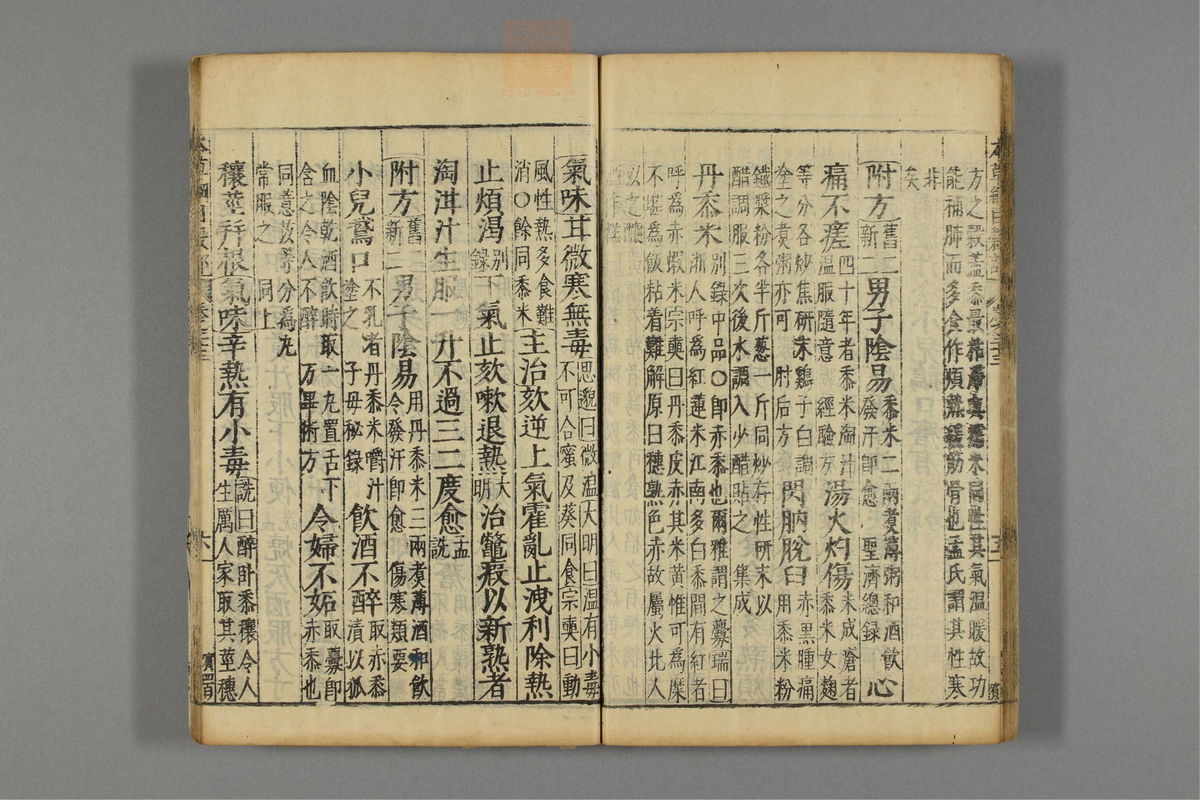 本草綱目穀部
方之穀蓋黍最粘滯與糯米同性其氣溫暖故功
能補肺而多食作煩熱緩筋骨也孟氏謂其性寒
非
矣
附方 舊二 新二 男子陰易 黍米二兩煮薄粥和酒飲 發汗即愈 聖濟總錄 心
痛不瘥 四十年者黍米淘汁 溫服隨意 經驗方 湯火灼傷 未成瘡者 黍米女麴
等分各炒焦研末鷄子白調 塗之煮粥亦可 肘后方 閃肭脫臼 赤黑腫痛 用黍米粉
鐵漿粉各半斤葱一斤同炒存性研末以
醋調服三次後水調入少醋貼之 集成
丹黍米 別錄中品○即赤黍也爾雅謂之虋瑞曰 浙人呼為紅蓮米江南多白黍間有紅者
呼為赤蝦米宗奭曰丹黍皮赤其米黃惟可為糜
不堪為飯粘着難解原曰穗熟色赤故屬火北人
以之釀
酒作糕
氣味甘微寒無毒 思邈曰微溫大明曰溫有小毒 不可合蜜及葵同食宗奭曰動
風性熱多食難 消○餘同黍米 主治欬逆上氣霍亂止洩利除熱
止煩渴 別錄 下氣止欬嗽退熱 大明 治鼈瘕以新熟者
淘泔汁生服一升不過三二度愈 孟詵
附方 舊二 新二 男子陰易 用丹黍米三兩煮薄酒和飲 令發汗即愈 傷寒類要
小兒鵞口 不乳者丹黍米嚼汁 塗之 子母秘錄 飲酒不醉 取赤黍 漬以狐
血陰乾酒飲時取一丸置舌下 含之令人不醉 萬畢術方 令婦不妬 取虋即 赤黍也
同薏苡等分為丸
常服之 同上
穰莖幷根氣味辛熱有小毒 詵曰醉臥黍穰令人 生厲人家取其莖穗